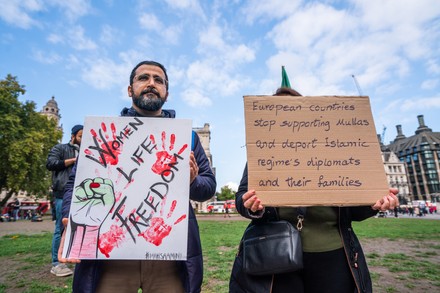 Women
Life
Freedom
European countries
stop supporting Mullas
and deport Islamic
regime's diplomats
and their families